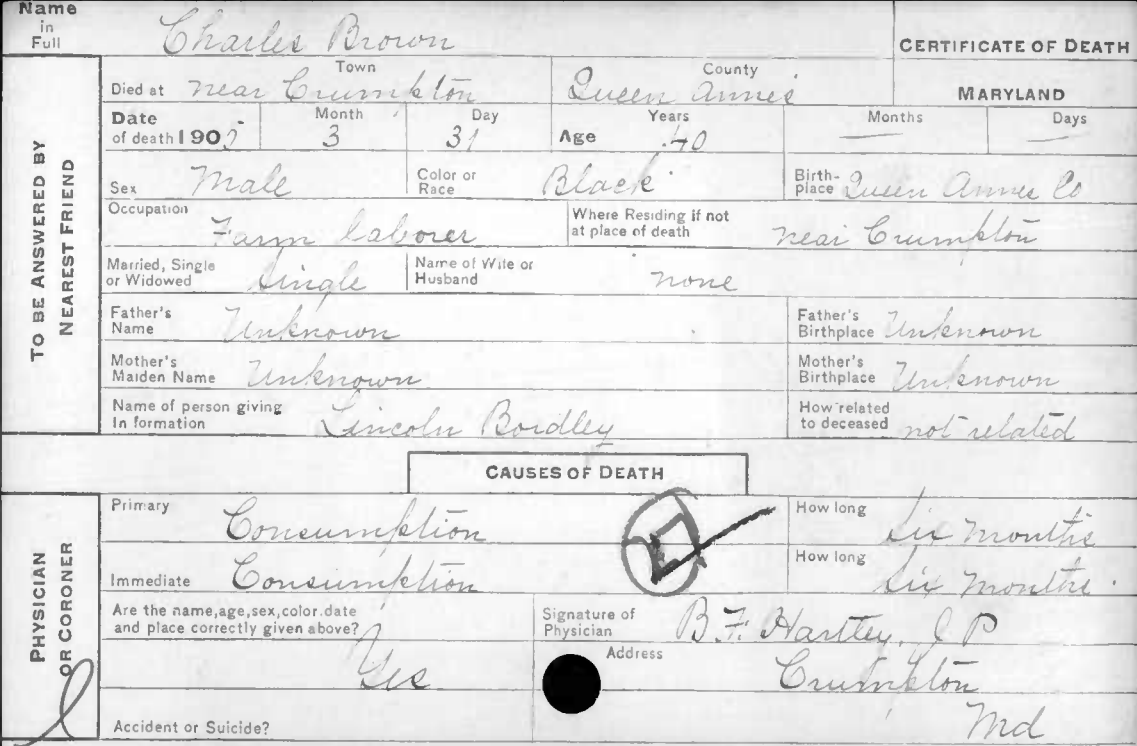 Name in Full Charles Brown
CERTIFICATE OF DEATH
TO BE ANSWERED BY NEAREST FRIEND
Died at near Crumpton Town Queen Annes County MARYLAND
Date of death 1905 Month 3 Day 31 Age Years 40 Months — Days —
Sex Male Color or Race Black Birth-place Queen Annes Co
Occupation Farm laborer Where Residing if not at place of death near Crumpton
Married, Single or Widowed Single Name of Wife or Husband none
Father's Name Unknown Father's Birthplace Unknown
Mother's Maiden Name Unknown Mother's Birthplace Unknown
Name of person giving In formation Lincoln Bordley How related to deceased not related
CAUSES OF DEATH
PHYSICIAN OR CORONER
Primary Consumption How long Six months
Immediate Consumption How long Six months.
Are the name,age,sex,color.date and place correctly given above? Yes
Signature of Physician B.F. Hartley, J P
Address Crumpton
Md
Accident or Suicide?